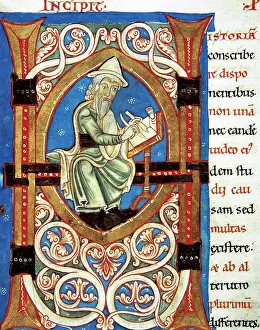 INCIPIT P
HISTORIĀ
conscribe
re dispo
nentibus
non unā
nec eandē
uideo ei᾿
dem stu
dij cau
sam sed
multas
existere.
& ab al
terutro
plurimū
differentes.